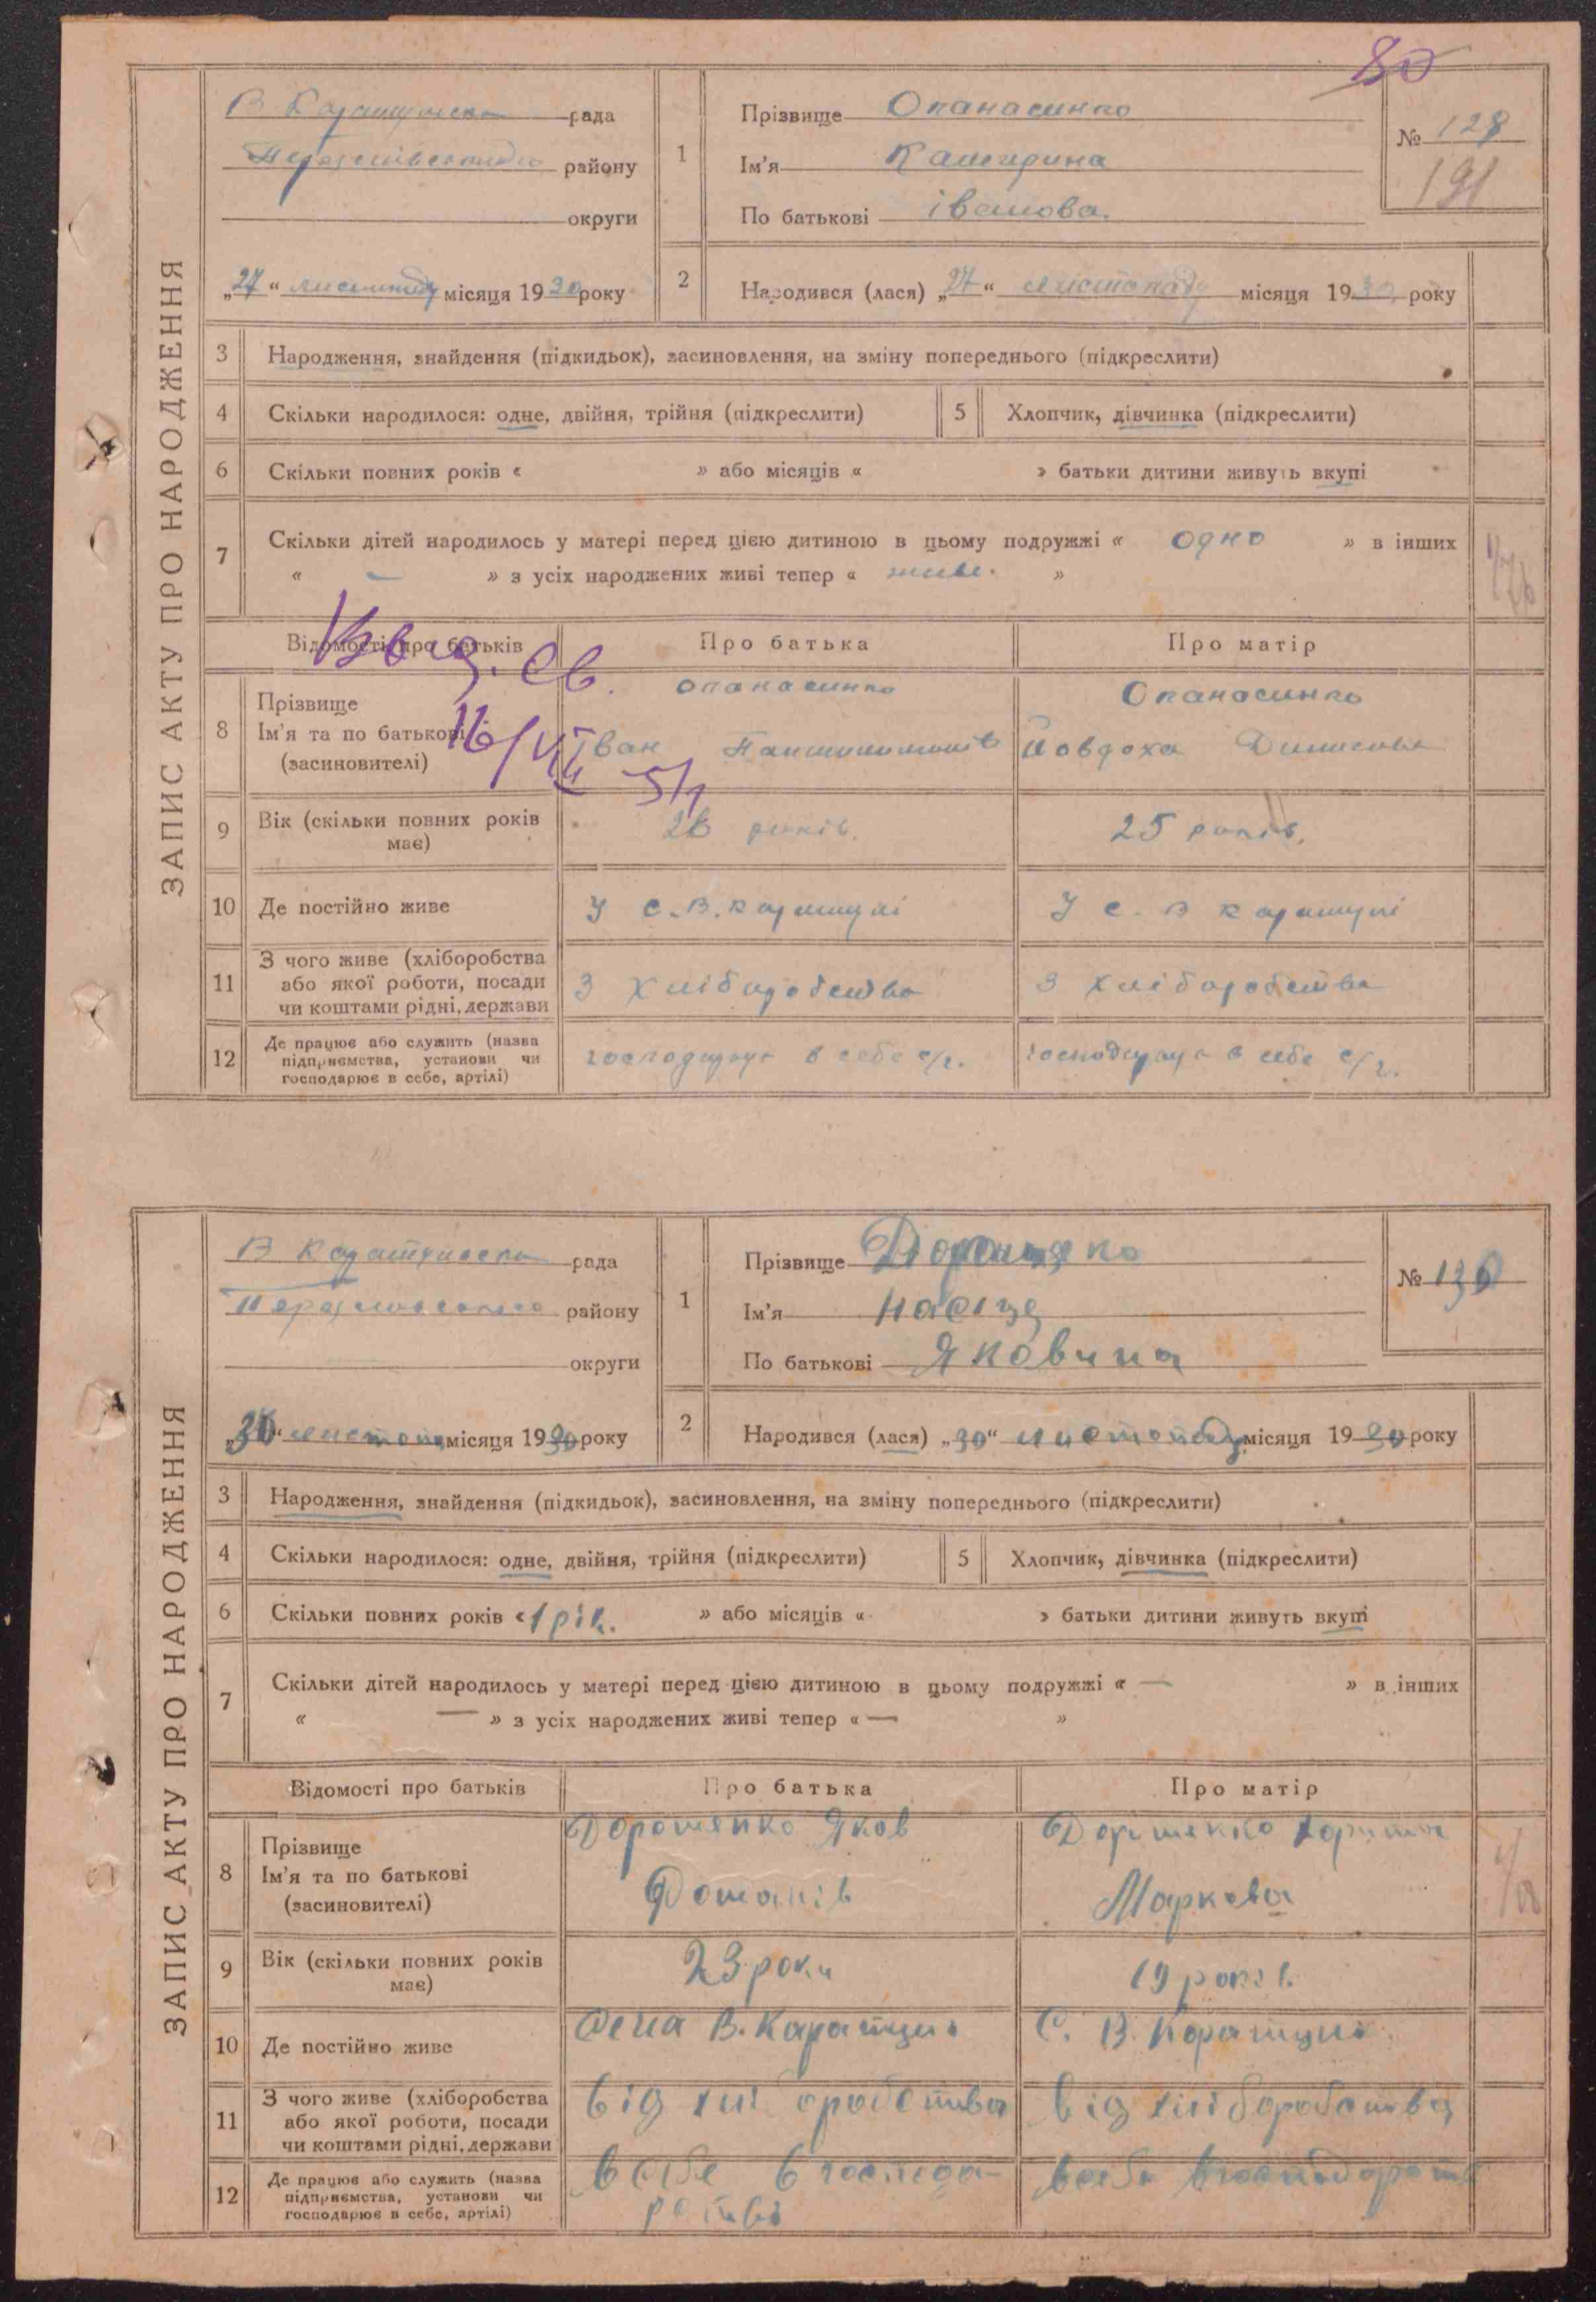 80
ЗАПИС АКТУ ПРО НАРОДЖЕННЯ
В Каратульська рада
району
округи
„27“ листопаду місяця 1930 року
1
Прізвище Опанасинко
Ім'я Катирина
По батькові іванова.
№ 128
191
2
Народився (лася) „27“ листопаду місяця 1930 року
3 Народження, знайдення (підкидьок), засиновлення, на зміну попереднього (підкреслити)
4 Скільки народилося: одне, двійня, трійня (підкреслити) 5 Хлопчик, дівчинка (підкреслити)
6 Скільки повних років « » або місяців « » батьки дитини живуть вкупі
7 Скільки дітей народилось у матері перед цією дитиною в цьому подружжі « одно » в інших
« — » з усіх народжених живі тепер « живе. »
Відомості про батьків Про батька Про матір
Св.
16/VII 51
8 Прізвище
Ім'я та по батькові
(засиновителі)
Опанасинко
Іван
Опанасинко
Йовдоха
9 Вік (скільки повних років має) 26 років. 25 років.
10 Де постійно живе У с. В. Каратулі У с. В Каратулі
11 З чого живе (хліборобства
або якої роботи, посади
чи коштами рідні, держави
З хліборобства З хліборобства
12 Де працює або служить (назва
підприємства, установи чи
господарює в себе, артілі)
господарює в себе с/г. господарює в себе с/г.
ЗАПИС АКТУ ПРО НАРОДЖЕННЯ
В Каратульська рада
району
округи
„30“ листопа місяця 1930 року
1
Прізвище
Ім'я
По батькові Яковина
№ 130
2
Народився (лася) „30“ листопаду місяця 1930 року
3 Народження, знайдення (підкидьок), засиновлення, на зміну попереднього (підкреслити)
4 Скільки народилося: одне, двійня, трійня (підкреслити) 5 Хлопчик, дівчинка (підкреслити)
6 Скільки повних років « 1 рік. » або місяців « » батьки дитини живуть вкупі
7 Скільки дітей народилось у матері перед цією дитиною в цьому подружжі « — » в інших
« — » з усіх народжених живі тепер « — »
Відомості про батьків Про батька Про матір
8 Прізвище
Ім'я та по батькові
(засиновителі)
Дорошенко Яков
Дорошенко
Маркова
9 Вік (скільки повних років має) 23 роки 19 років
10 Де постійно живе В. Каратуль С. В. Каратуль
11 З чого живе (хліборобства
або якої роботи, посади
чи коштами рідні, держави
від хліборобства від хліборобства
12 Де працює або служить (назва
підприємства, установи чи
господарює в себе, артілі)
в себе в господа-
рстві
в себе в господарств